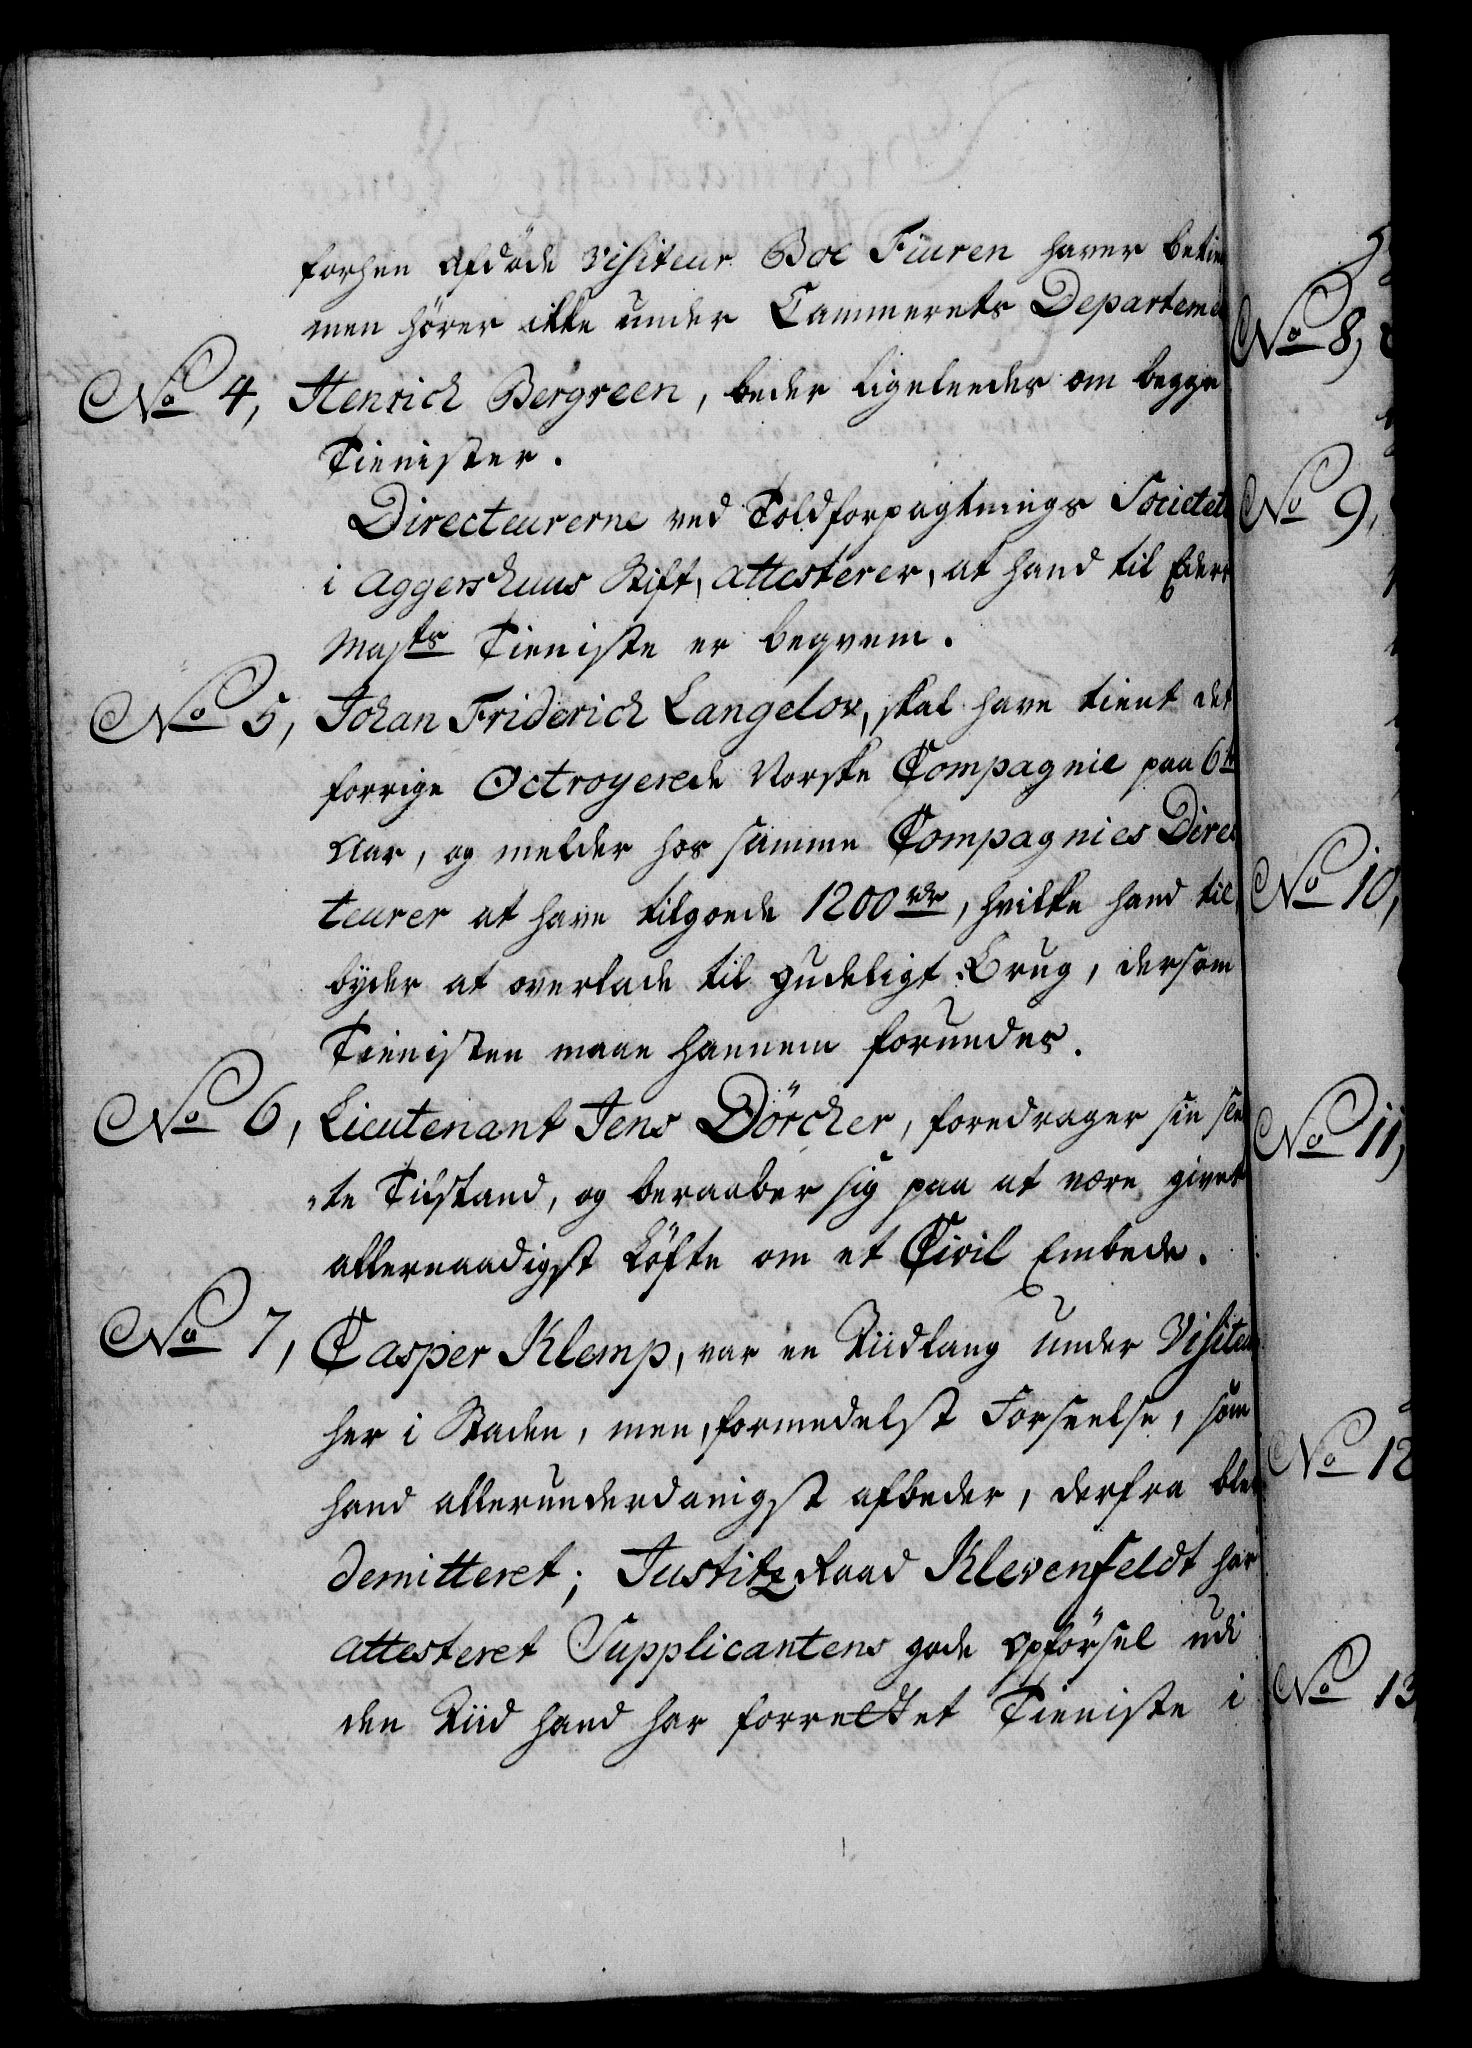 forhen afdöde Visiteur Boe Fiuren haver betie
men hörer icke under Cammerets Departeme
No 4, Henrich Bergreen, beder ligeleedes om begge
Tienister.
Directeurerne ved Toldforpagtnings Societet
i Aggershuus Stift, attesterer, at hand til Eders
Majts Tieniste er beqvem.
No 5, Johan Friderich Langelov, skal have tient det
forrige Octroyerede Norske Compagnie paa 6te
Aar, og melder hos samme Compagnies Direc
teurer at have tilgoede 1200 rdr, hvilke hand til
byder at overlade til gudeligt Brug, dersom
Tienisten maae hannem forundes.
No 6, Lieutenant Jens Dörcher, foredrager sin slet
te Tilstand, og beraaber sig paa at være givet
allernaadigst Löfte om et Civil Embede.
No 7, Casper Klemp, var en Tiidlang under Visiteur
her i Staden, men, formedelst Forseelse, som
hand allerunderdanigst afbeder, derfra blev
demitteret; Justitz Raad Klevenfeldt har
attesteret Supplicantens gode Opförsel udi
den Tiid hand har forrettet Tieniste i
No 8,
No 9,
No 10,
No 11,
No 12
No 13